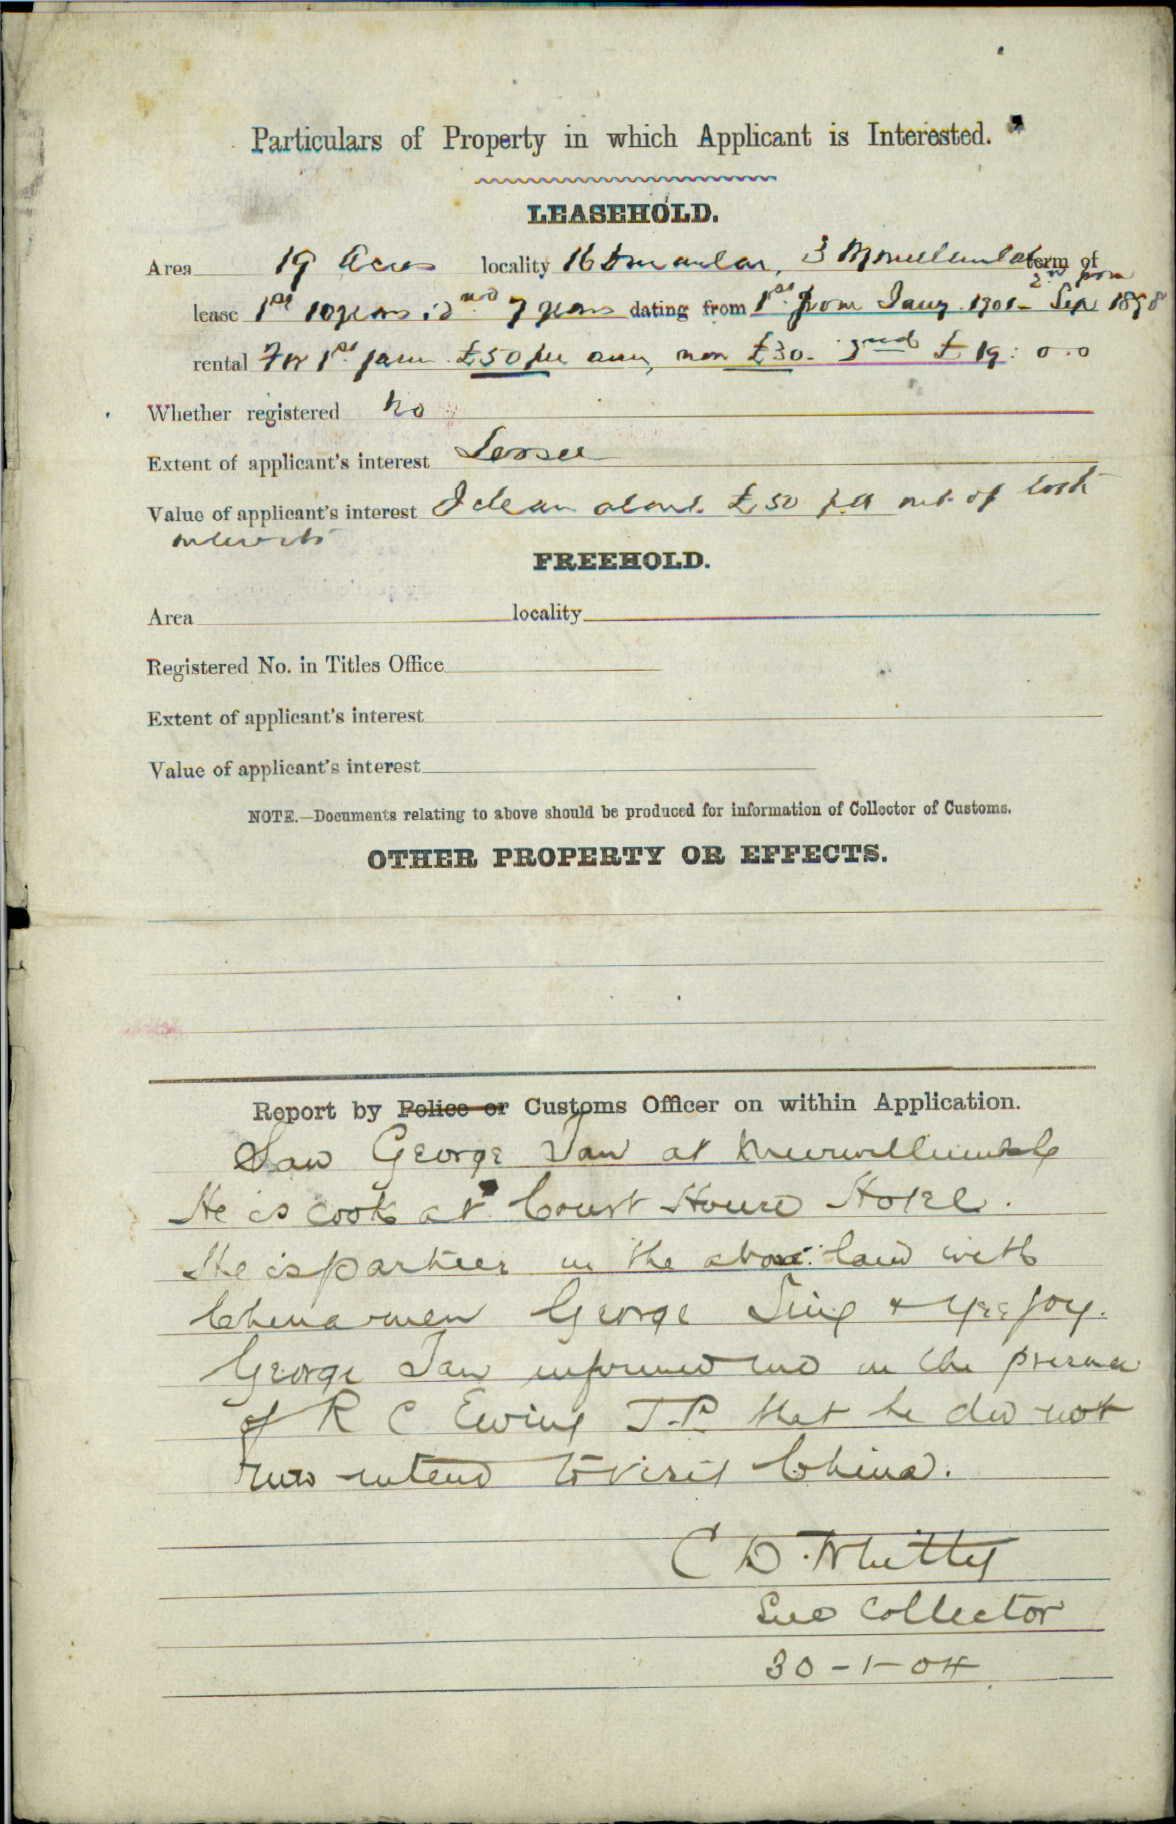 Particulars of Property in which Applicant is Interested.
LEASEHOLD.
Area 19 Acres locality 16 3 Murwillumbah term of
lease 1st 10 years 2nd 7 years dating from 1st from Jany 1901 - 2nd from Sep 1898
rental For 1st farm £50 per ann, now £30. 2nd £19 : 0 . 0
Whether registered No
Extent of applicant's interest Lessee
Value of applicant's interest I clear about £50 out of both
interests
FREEHOLD.
Area locality
Registered No. in Titles Office
Extent of applicant's interest
Value of applicant's interest
NOTE.—Documents relating to above should be produced for information of Collector of Customs.
OTHER PROPERTY OR EFFECTS.
Report by Police or Customs Officer on within Application.
Saw George Jan at Murwillumbah
He is cook at Court House Hotel.
He is partner in the above land with
Chinamen George Sing & Yee Joy.
George Jan informed me in the presence
of R C Ewing J.P. that he did not
now intend to visit China.
C D. Whitty
Sub Collector
30-1-04